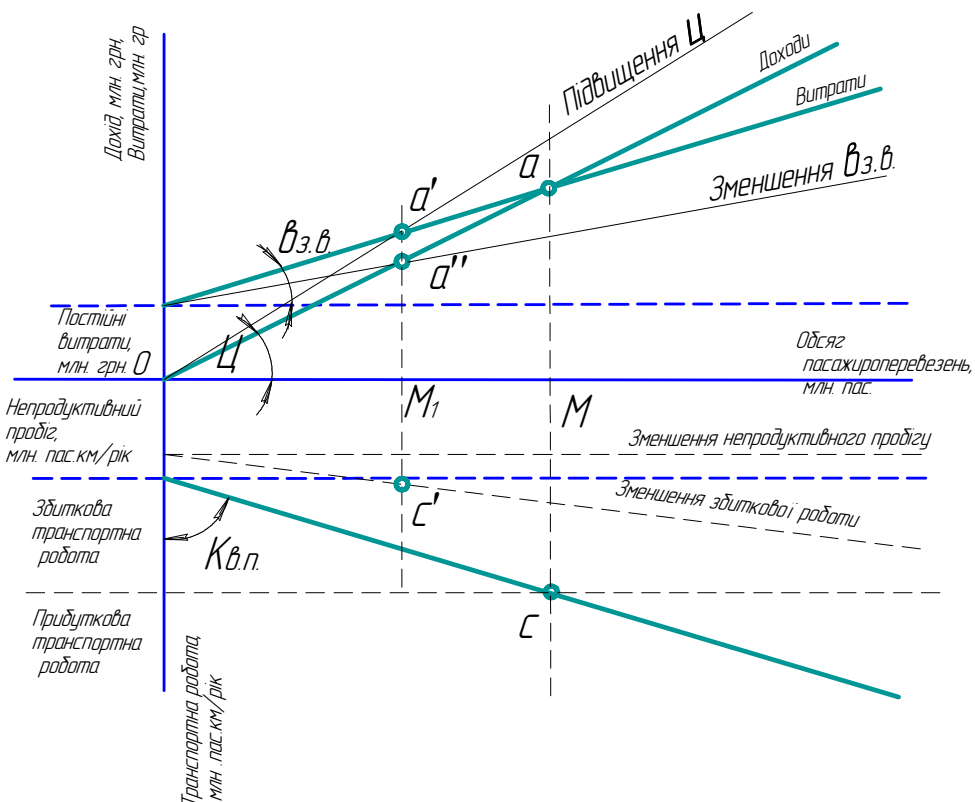 Дохід, млн. грн,
Витрати,млн. гр
Підвищення Ц
Доходи
Витрати
a
Зменшення Вз.в.
a'
Вз.в.
a''
Постійні
витрати,
млн. грн.
O
Ц
Обсяг
пасажироперевезень,
млн. пас.
M1
M
Непродуктивний
пробіг,
млн. пас.км/рік
Зменшення непродуктивного пробігу
c'
Зменшення збиткової роботи
Збиткова
транспортна
робота
Кв.п.
c
Прибуткова
транспортна
робота
Транспортна робота,
млн .пас.км/рік